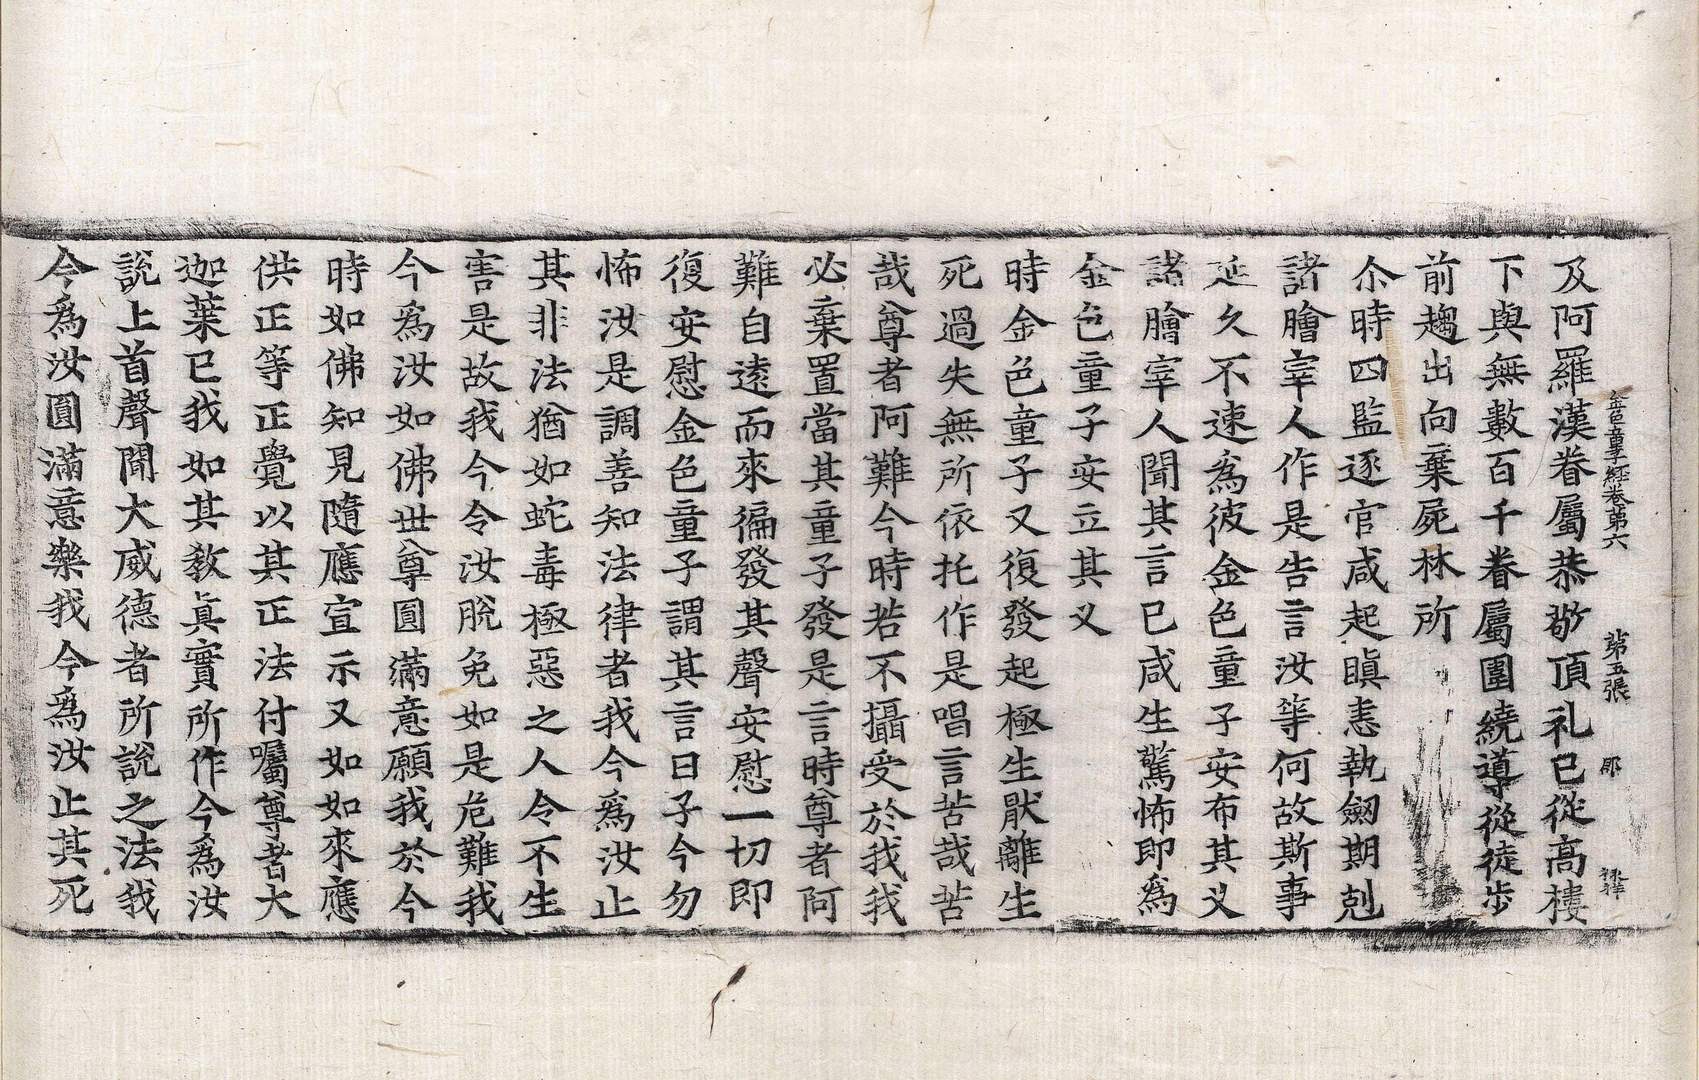 金色童子經卷第六 第五張 郡
及阿羅漢眷屬恭敬頂礼已從高樓
下與無數百千眷屬圍繞導從徒步
前趨出向棄屍林所
尒時四監逐官咸起瞋恚執劔期剋
諸膾宰人作是告言汝等何故斯事
延久不速爲彼金色童子安布其义
諸膾宰人聞其言已咸生驚怖即爲
金色童子安立其义
時金色童子又復發起極生猒離生
死過失無所依托作是唱言苦哉苦
哉尊者阿難今時若不攝受於我我
必棄置當其童子發是言時尊者阿
難自遠而來徧發其聲安慰一切即
復安慰金色童子謂其言曰子今勿
怖汝是調善知法律者我今爲汝止
其非法猶如蛇毒極惡之人令不生
害是故我今令汝脫免如是危難我
今爲汝如佛世尊圓滿意願我於今
時如佛知見隨應宣示又如如來應
供正等正覺以其正法付囑尊者大
迦葉已我如其教真實所作今爲汝
說上首聲聞大威德者所說之法我
今爲汝圓滿意樂我今爲汝止其死